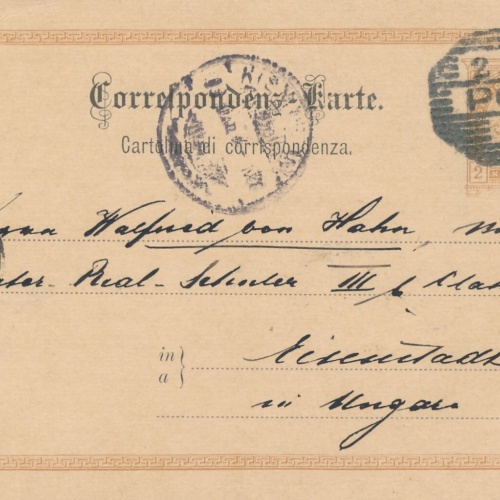 Correspondenz-Karte.
Cartolina di corrispondenza.
Walfried von Hahn,
Real-Schüler III b Clas
in Eisenstadt
a
in Ungarn
2
2